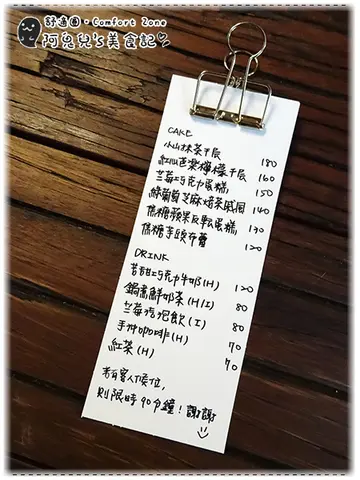 舒適圈·Comfort Zone
阿兒兒's美食記
CAKE
小山林茶千層 180
紅心芭樂檸檬千層 160
草莓巧克力蛋糕 150
綠葡萄芝麻焙茶戚風 140
焦糖蘋果反轉蛋糕 130
焦糖李子克布蕾 120
DRINK
苦甜巧克力牛奶(H) 120
鍋煮鮮奶茶(H/I) 80
草莓泡泡飲(I) 80
手沖咖啡(H) 70
紅茶(H) 70
若有客人候位,
則限時90分鐘!謝謝